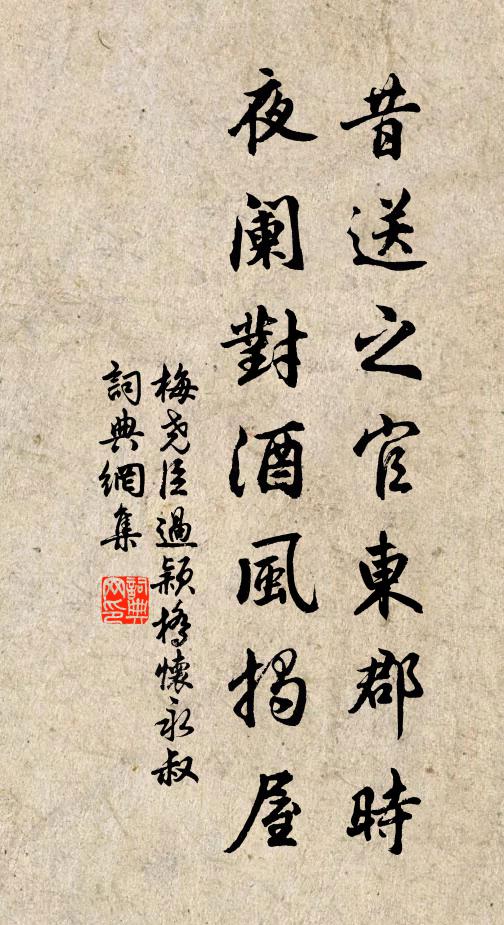 昔送之官東郡時
夜阑對酒風揭屋
梅堯臣過潁橋懷永叔
詞典網集
詞典網印